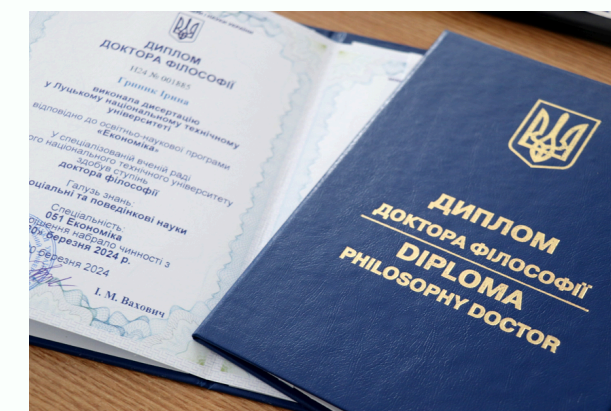 ДИПЛОМ
ДОКТОРА ФІЛОСОФІЇ
H24 № 001885
Гриник Ірина
виконала дисертацію
у Луцькому національному технічному
університеті
відповідно до освітньо-наукової програми
«Економіка»
У спеціалізованій вченій раді
ого національного технічного університету
здобув ступінь
доктора філософії
Галузь знань:
оціальні та поведінкові науки
Спеціальність:
051 Економіка
ішення набрало чинності з
березня 2024 р.
березня 2024
І. М. Вахович
ДИПЛОМ
ДОКТОРА ФІЛОСОФІЇ
DIPLOMA
PHILOSOPHY DOCTOR